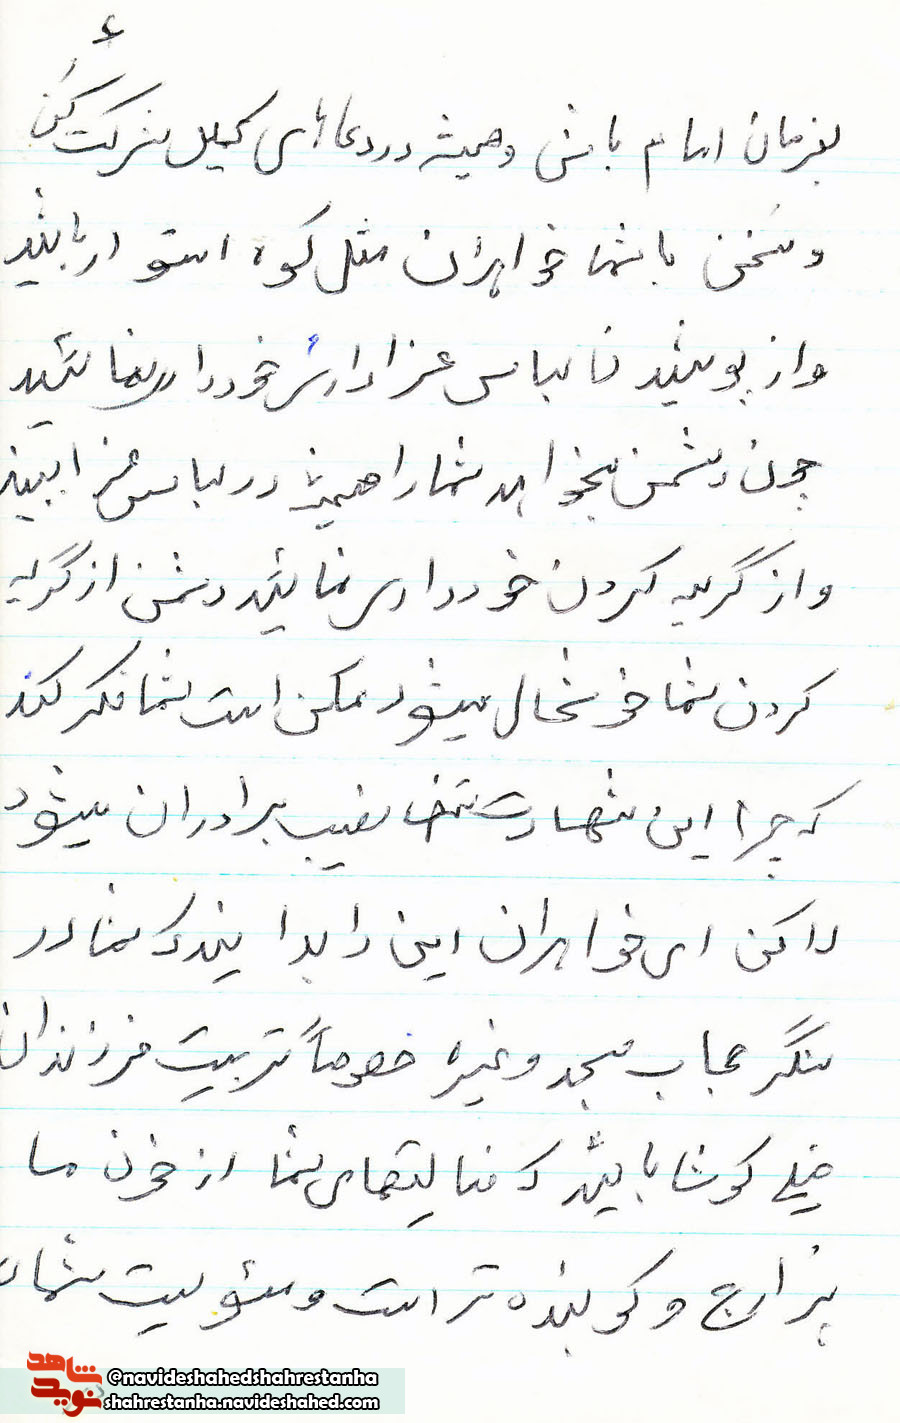 ۶
بفرمان امام باش و همیشه در دعاهای کمیل شرکت کن
و سخنی با شما خواهران مثل کوه استوار باشید
و از پوشیدن لباس عزاداری خودداری نمائید
چون دشمن میخواهد شما را همیشه در لباس عزا ببیند
و از گریه کردن خودداری نمائید دشمن از گریه
کردن شما خوشحال میشود ممکن است شما فکر کنید
که چرا این شهادت نصیب برادران میشود
لاکن ای خواهران این را بدانید که شما در
سنگر حجاب مسجد و غیره خصوصاً تربیت فرزندان
خیلی کوشا باشید که فعالیتهای شما از خون ما
پر ارج و کوبنده تر است و مسئولیت شما
شاهد
نوید
@navideshahedshahrestanha
shahrestanha.navideshahed.com